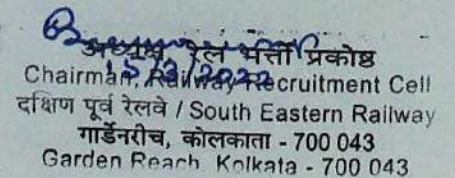 अध्यक्ष रेल भर्ती प्रकोष्ठ
15/3/2022
Chairman, Railway Recruitment Cell
दक्षिण पूर्व रेलवे / South Eastern Railway
गार्डेनरीच, कोलकाता - 700 043
Garden Reach, Kolkata - 700 043